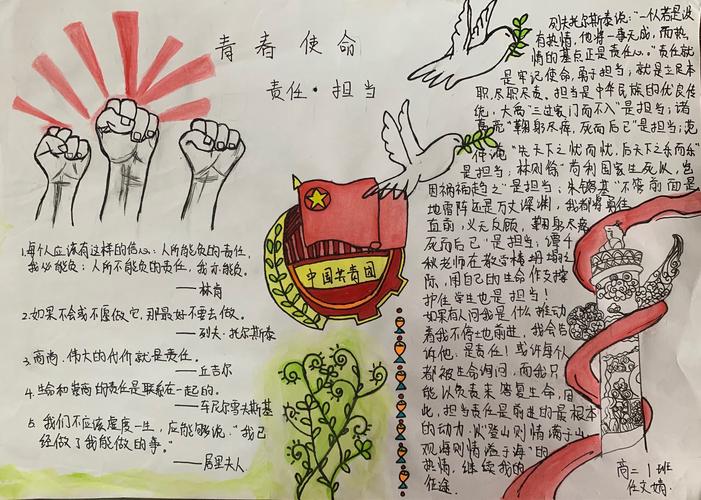 青春使命
责任·担当
1.每个人应该有这样的信心：人所能负的责任，
我必能负；人所不能负的责任，我亦能负。
——林肯
2.如果不会或不愿做它，那最好不要去做。
——列夫·托尔斯泰
3.高尚、伟大的代价就是责任。
——丘吉尔
4.生命和崇高的责任是联系在一起的。
——车尼尔雪夫斯基
5.我们不应该虚度一生，应能够说："我已
经做了我能做的事。"
——居里夫人
中国共青团
列夫托尔斯泰说："一个人若是没
有热情，他将一事无成，而热
情的基点正是责任心。"责任就
是牢记使命，勇于担当，就是立足本
职、尽职尽责。担当是中华民族的优良传
统，大禹"三过家门而不入"是担当；诸
葛亮"鞠躬尽瘁，死而后已"是担当；范
仲淹"先天下之忧而忧，后天下之乐而乐"
是担当；林则徐"苟利国家生死以，岂
因祸福趋避之"是担当；朱镕基"不管前面是
地雷阵还是万丈深渊，我都将勇往
直前，义无反顾，鞠躬尽瘁
死而后已"是担当；谭千
秋老师在教学楼坍塌之
际，用自己的生命作支撑
护住学生也是担当！
如果有人问我是什么推动
着我不停地前进，我会告
诉他，是责任！或许每个人
都被生命询问，而我只
能以负责来答复生命，因
此，担当责任是前进的最根本
的动力。以登山则情满于山
观海则情溢于海"的
热情，继续我的
征途。
高二1班
任文婧